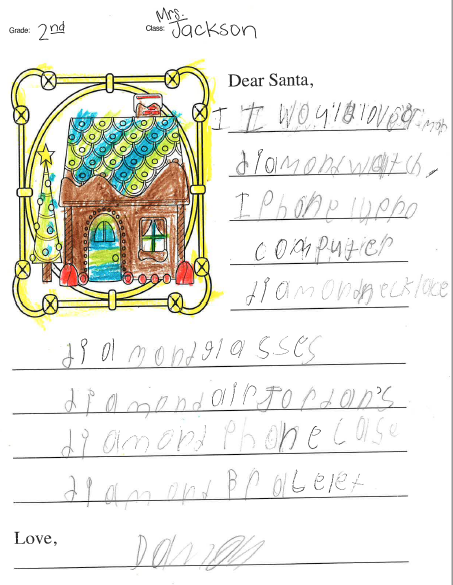 Grade: 2nd
Mrs.
Class: Jackson
Dear Santa,
I I would love
diamond watch.
I Phone
computer
diamond necklace
diamond glasses
diamond air Jordan's
diamond Phone Case
diamond Bracelet
Love,